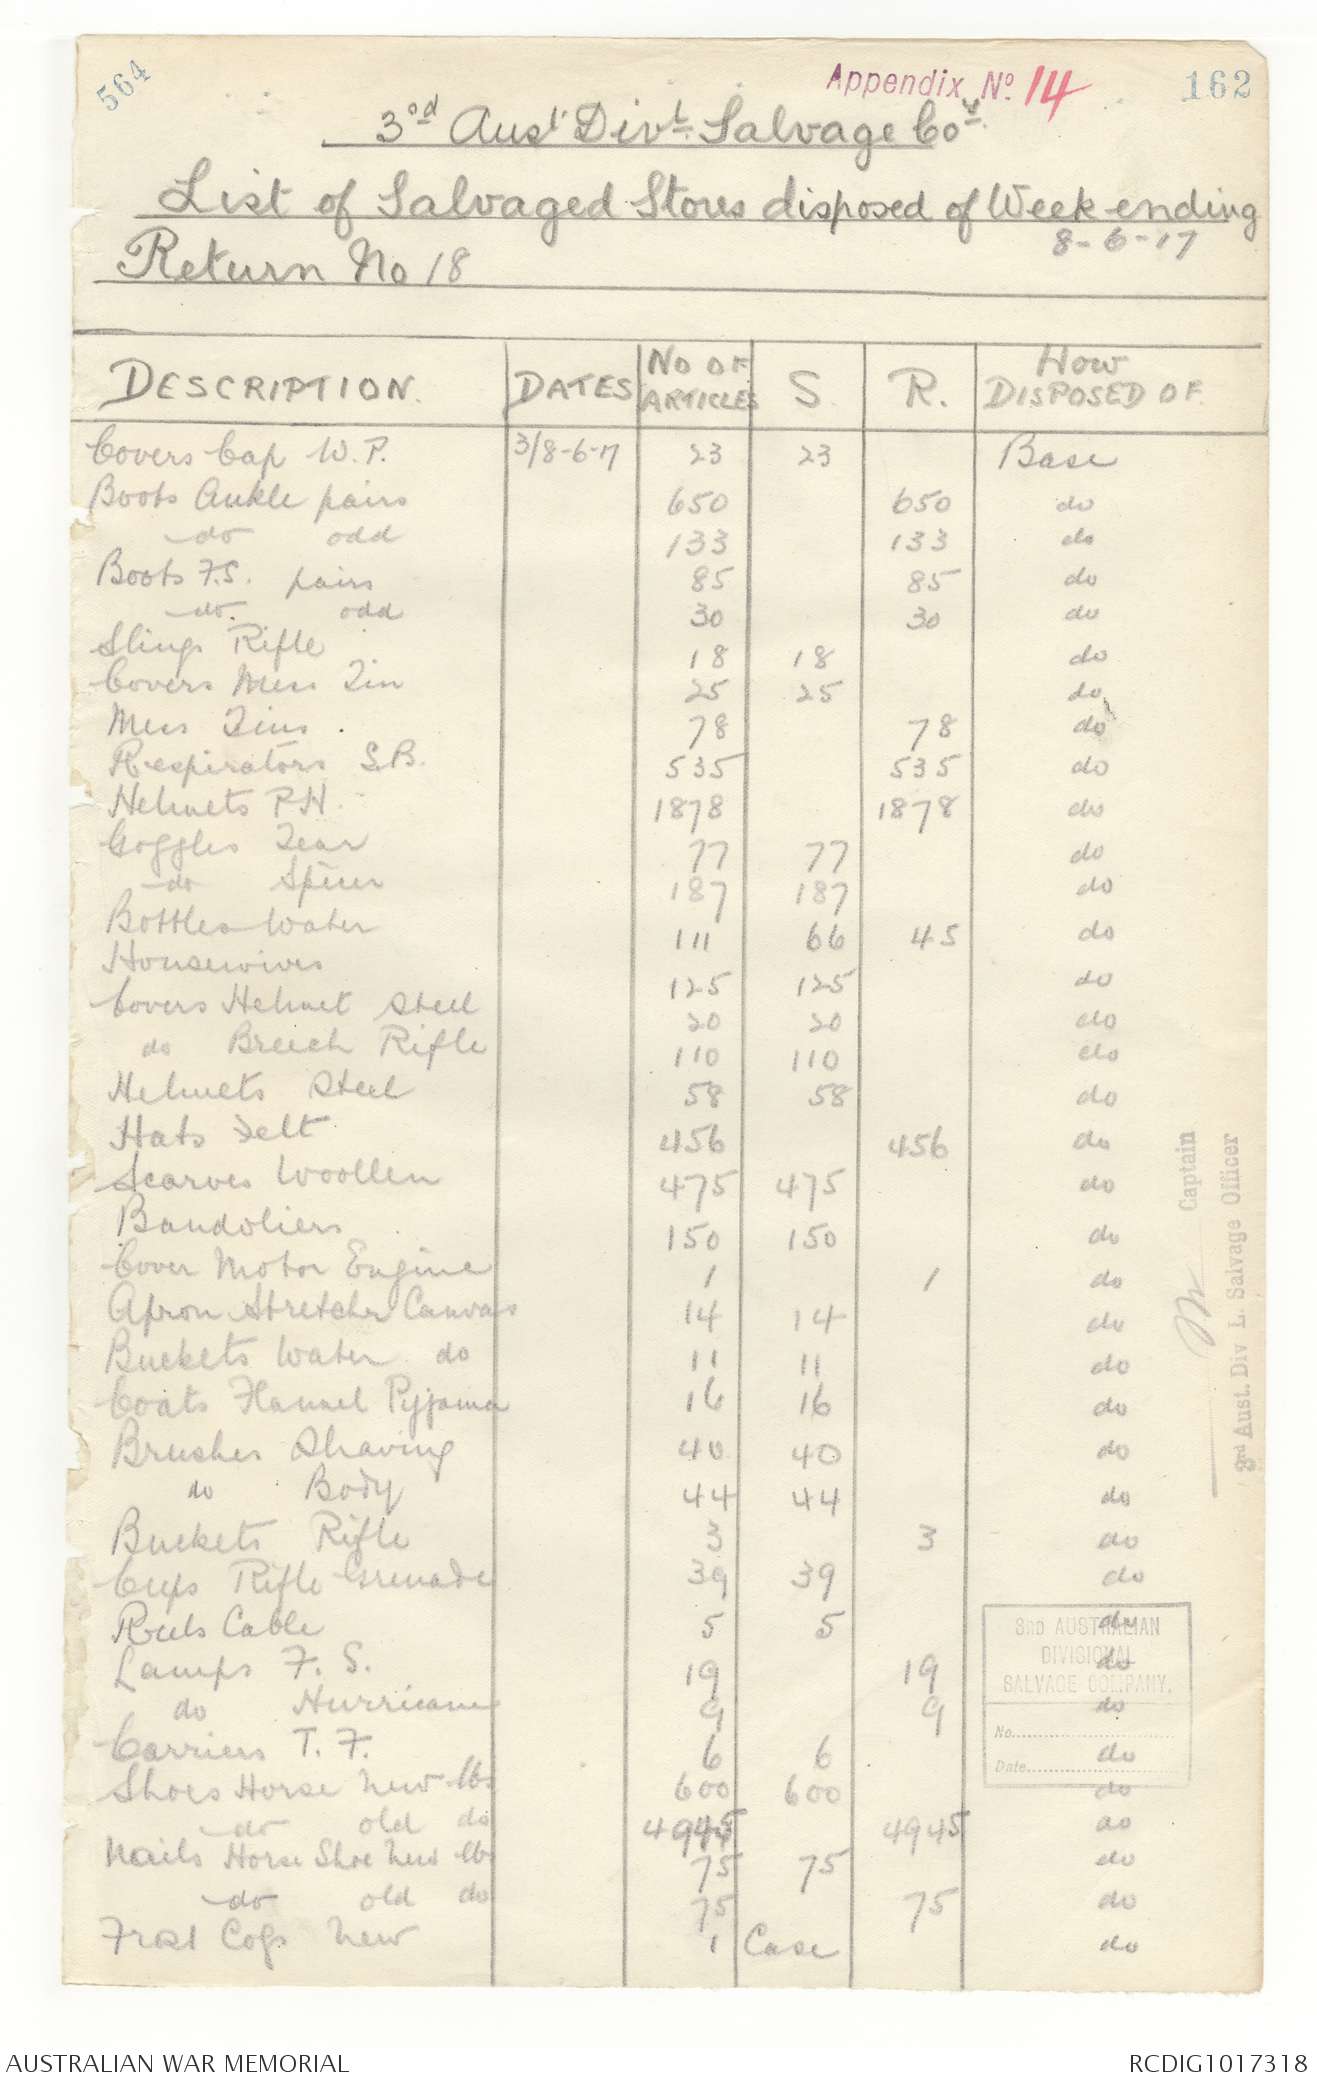 564
Appendix No. 14
162
3rd Aust Divl. Salvage Coy.
List of Salvaged Stores disposed of Week ending
8-6-17
Return No 18
DESCRIPTION. DATES No OF ARTICLES S. R. How DISPOSED OF.
Covers Cap W.P. 3/8-6-17 23 23 Base
Boots Ankle pairs 650 650 do
do odd 133 133 do
Boots F.S. pairs 85 85 do
do. odd 30 30 do
Slings Rifle 18 18 do
Covers Mess Tin 25 25 do
Mess Tins. 78 78 do
Respirators S.B. 535 535 do
Helmets P.H. 1878 1878 do
Goggles Tear 77 77 do
do Spicer 187 187 do
Bottles Water 111 66 45 do
Housewives 125 125 do
Covers Helmet Steel 20 20 do
do Breech Rifle 110 110 do
Helmets Steel 58 58 do
Hats Felt 456 456 do
Scarves Woollen 475 475 do
Bandoliers 150 150 do
Cover Motor Engine 1 1 do
Apron Stretcher Canvas 14 14 do
Buckets Water do 11 11 do
Coats Flannel Pyjama 16 16 do
Brushes Shaving 40 40 do
do Body 44 44 do
Buckets Rifle 3 3 do
Cups Rifle Grenade 39 39 do
Reels Cable 5 5 do
Lamps F.S. 19 19 do
do Hurricane 9 9 do
Carriers T.F. 6 6 do
Shoes Horse New lbs 600 600 do
do old do 4945 4945 do
Nails Horse Shoe New lbs 75 75 do
do old do 75 75 do
Frost Cogs New 1 Case do
Captain
3rd Aust. Div L. Salvage Officer
3RD AUSTRALIAN
DIVISIONAL
SALVAGE COMPANY.
No.
Date
AUSTRALIAN WAR MEMORIAL
RCDIG1017318